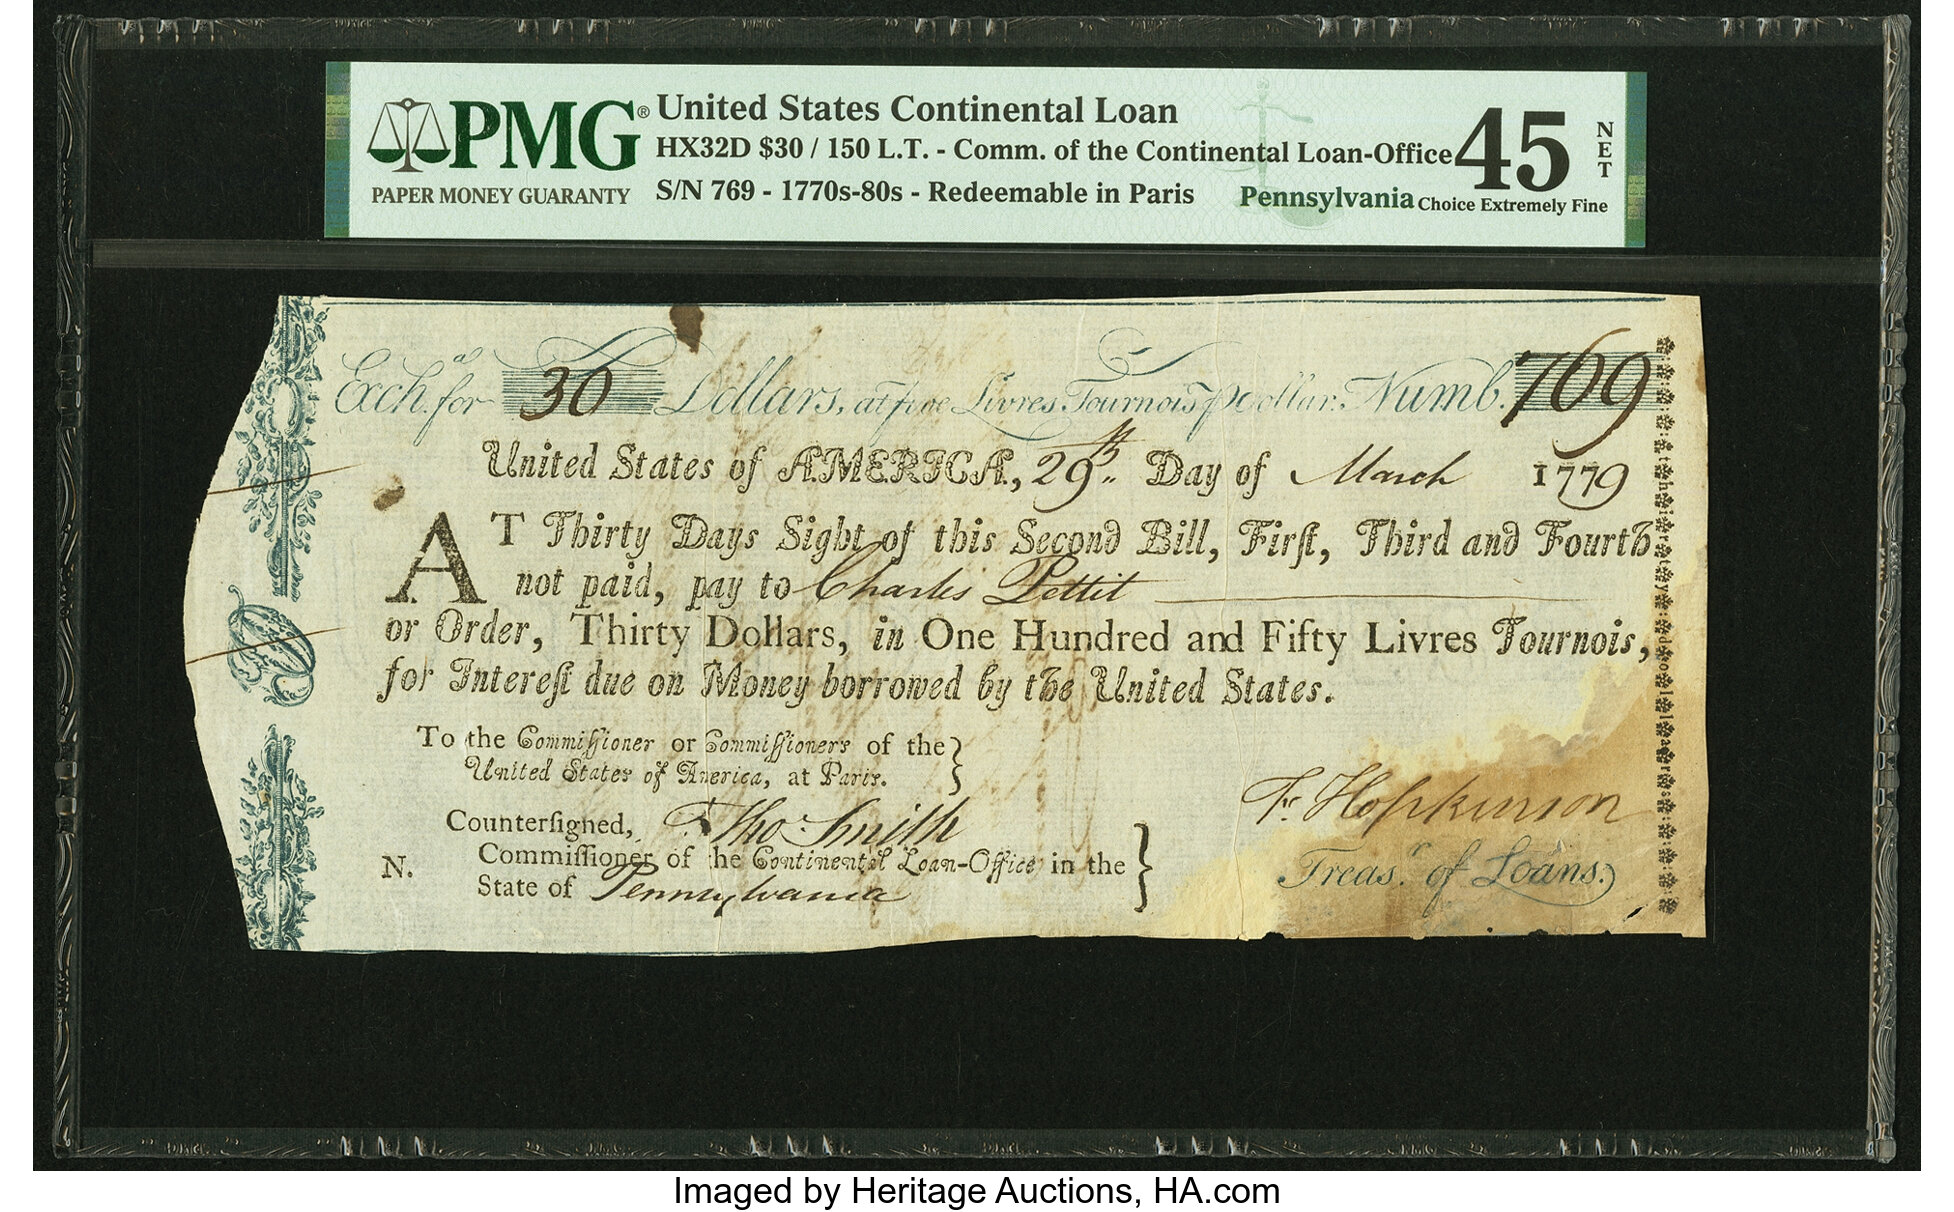 PMG®
PAPER MONEY GUARANTY
United States Continental Loan
HX32D $30 / 150 L.T. - Comm. of the Continental Loan-Office
S/N 769 - 1770s-80s - Redeemable in Paris
Pennsylvania
45
NET
Choice Extremely Fine
Exch.ᵃˡ for 30 Dollars, at five Livres Tournois p Dollar. Numb. 769
United States of AMERICA, 29th Day of March 1779
AT Thirty Days Sight of this Second Bill, Firſt, Third and Fourth
not paid, pay to Charles Pettit
or Order, Thirty Dollars, in One Hundred and Fifty Livres Tournois,
for Intereſt due on Money borrowed by the United States.
To the Commiſſioner or Commiſſioners of the
United States of America, at Paris.
Counterſigned, Tho. Smith
N. Commiſſioner of the Continental Loan-Office in the
State of Pennsylvania
F. Hopkinson
Treas.ʳ of Loans.
thirty dollars
Imaged by Heritage Auctions, HA.com